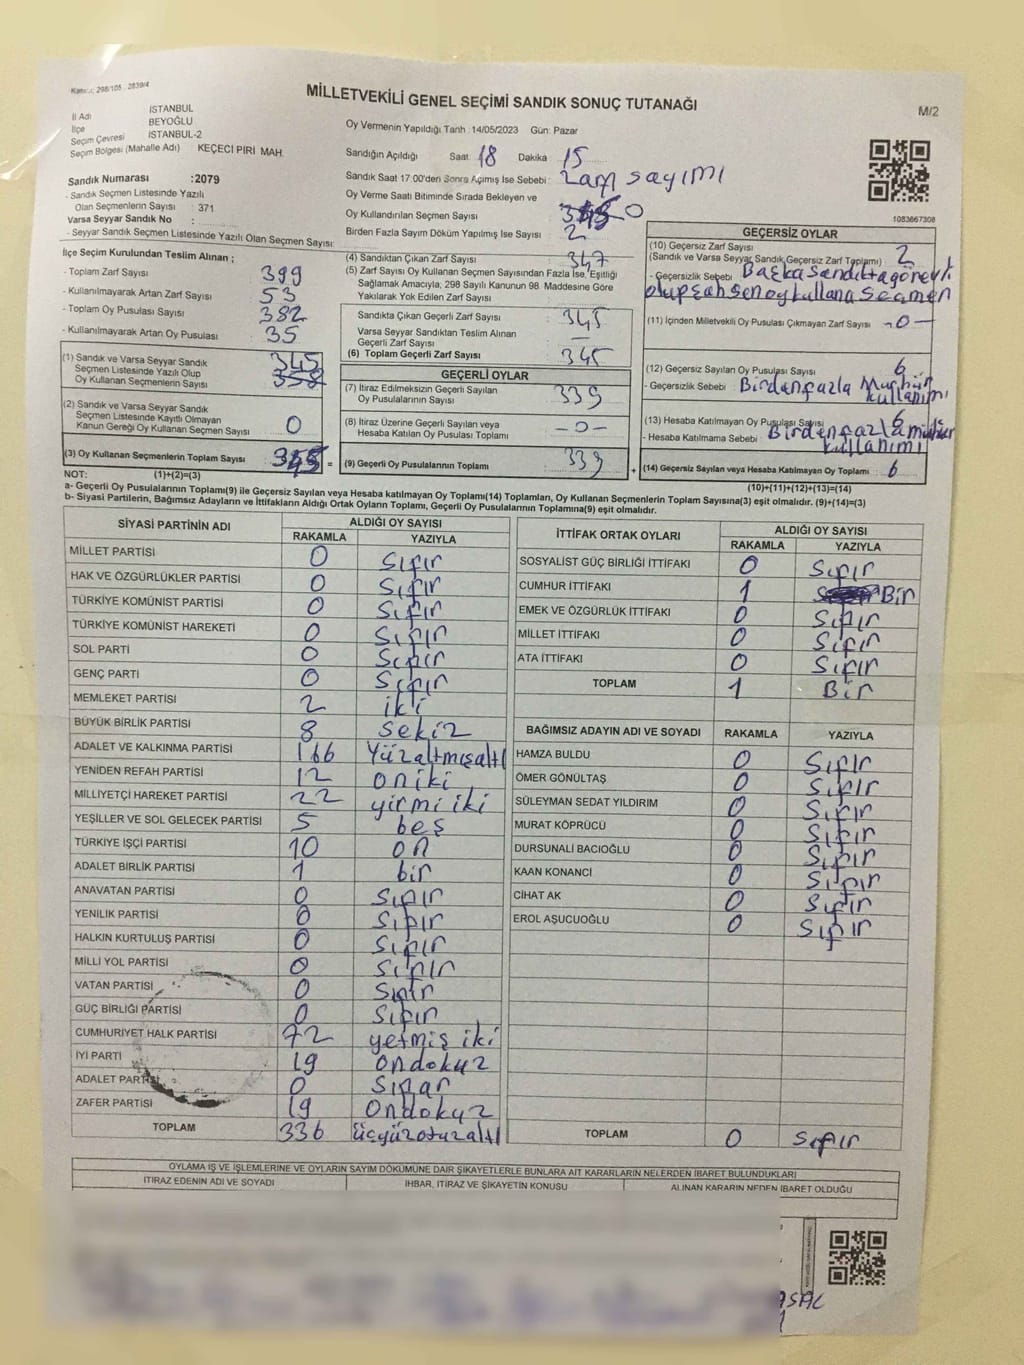 Kanun: 298/105 . 2839/4
MİLLETVEKİLİ GENEL SEÇİMİ SANDIK SONUÇ TUTANAĞI
M/2
İl Adı İSTANBUL
İlçe BEYOĞLU
Seçim Çevresi İSTANBUL-2
Seçim Bölgesi (Mahalle Adı) KEÇECİ PİRİ MAH.
Sandık Numarası :2079
- Sandık Seçmen Listesinde Yazılı
Olan Seçmenlerin Sayısı : 371
Varsa Seyyar Sandık No :
- Seyyar Sandık Seçmen Listesinde Yazılı Olan Seçmen Sayısı:
Oy Vermenin Yapıldığı Tarih :14/05/2023 Gün: Pazar
Sandığın Açıldığı Saat: 18 Dakika : 15
Sandık Saat 17:00'den Sonra Açılmış İse Sebebi : zarf sayımı
Oy Verme Saati Bitiminde Sırada Bekleyen ve
Oy Kullandırılan Seçmen Sayısı : 0
Birden Fazla Sayım Döküm Yapılmış İse Sayısı : 2
1083667308
İlçe Seçim Kurulundan Teslim Alınan ;
- Toplam Zarf Sayısı : 399
- Kullanılmayarak Artan Zarf Sayısı : 53
- Toplam Oy Pusulası Sayısı : 382
- Kullanılmayarak Artan Oy Pusulası : 35
(1) Sandık ve Varsa Seyyar Sandık
Seçmen Listesinde Yazılı Olup
Oy Kullanan Seçmenlerin Sayısı : 345
(2) Sandık ve Varsa Seyyar Sandık
Seçmen Listesinde Kayıtlı Olmayan
Kanun Gereği Oy Kullanan Seçmen Sayısı : 0
(3) Oy Kullanan Seçmenlerin Toplam Sayısı : 345 =
(4) Sandıktan Çıkan Zarf Sayısı : 347
(5) Zarf Sayısı Oy Kullanan Seçmen Sayısından Fazla İse, Eşitliği
Sağlamak Amacıyla; 298 Sayılı Kanunun 98. Maddesine Göre
Yakılarak Yok Edilen Zarf Sayısı :
Sandıkta Çıkan Geçerli Zarf Sayısı : 345
Varsa Seyyar Sandıktan Teslim Alınan
Geçerli Zarf Sayısı : —
(6) Toplam Geçerli Zarf Sayısı : 345
GEÇERLİ OYLAR
(7) İtiraz Edilmeksizin Geçerli Sayılan
Oy Pusulalarının Sayısı : 339
(8) İtiraz Üzerine Geçerli Sayılan veya
Hesaba Katılan Oy Pusulası Toplamı : -0-
(9) Geçerli Oy Pusulalarının Toplamı : 339 +
GEÇERSİZ OYLAR
(10) Geçersiz Zarf Sayısı : 2
(Sandık ve Varsa Seyyar Sandık Geçersiz Zarf Toplamı)
- Geçersizlik Sebebi : Başka sandıkta görevli
olup şahsen oy kullana seçmen
(11) İçinden Milletvekili Oy Pusulası Çıkmayan Zarf Sayısı : -0-
(12) Geçersiz Sayılan Oy Pusulası Sayısı : 6
- Geçersizlik Sebebi : Birden fazla Mürhün
kullanımı
(13) Hesaba Katılmayan Oy Pusulası Sayısı : 6
- Hesaba Katılmama Sebebi : Birden fazla mühür
kullanımı
(14) Geçersiz Sayılan veya Hesaba Katılmayan Oy Toplamı : 6
NOT: (1)+(2)=(3)
(10)+(11)+(12)+(13)=(14)
a- Geçerli Oy Pusulalarının Toplamı(9) ile Geçersiz Sayılan veya Hesaba katılmayan Oy Toplamı(14) Toplamları, Oy Kullanan Seçmenlerin Toplam Sayısına(3) eşit olmalıdır. (9)+(14)=(3)
b- Siyasi Partilerin, Bağımsız Adayların ve İttifakların Aldığı Ortak Oyların Toplamı, Geçerli Oy Pusulalarının Toplamına(9) eşit olmalıdır.
SİYASİ PARTİNİN ADI ALDIĞI OY SAYISI
RAKAMLA YAZIYLA
MİLLET PARTİSİ 0 Sıfır
HAK VE ÖZGÜRLÜKLER PARTİSİ 0 Sıfır
TÜRKİYE KOMÜNİST PARTİSİ 0 Sıfır
TÜRKİYE KOMÜNİST HAREKETİ 0 Sıfır
SOL PARTİ 0 Sıfır
GENÇ PARTİ 0 Sıfır
MEMLEKET PARTİSİ 2 iki
BÜYÜK BİRLİK PARTİSİ 8 sekiz
ADALET VE KALKINMA PARTİSİ 166 Yüzaltmışaltı
YENİDEN REFAH PARTİSİ 12 oniki
MİLLİYETÇİ HAREKET PARTİSİ 22 yirmi iki
YEŞİLLER VE SOL GELECEK PARTİSİ 5 beş
TÜRKİYE İŞÇİ PARTİSİ 10 on
ADALET BİRLİK PARTİSİ 1 bir
ANAVATAN PARTİSİ 0 Sıfır
YENİLİK PARTİSİ 0 Sıfır
HALKIN KURTULUŞ PARTİSİ 0 Sıfır
MİLLİ YOL PARTİSİ 0 Sıfır
VATAN PARTİSİ 0 Sıfır
GÜÇ BİRLİĞİ PARTİSİ 0 Sıfır
CUMHURİYET HALK PARTİSİ 72 yetmiş iki
İYİ PARTİ 19 ondokuz
ADALET PARTİSİ 0 Sıfar
ZAFER PARTİSİ 19 Ondokuz
TOPLAM 336 üçyüzotuzaltı
İTTİFAK ORTAK OYLARI ALDIĞI OY SAYISI
RAKAMLA YAZIYLA
SOSYALİST GÜÇ BİRLİĞİ İTTİFAKI 0 Sıfır
CUMHUR İTTİFAKI 1 Bir
EMEK VE ÖZGÜRLÜK İTTİFAKI 0 Sıfır
MİLLET İTTİFAKI 0 Sıfır
ATA İTTİFAKI 0 Sıfır
TOPLAM 1 Bir
BAĞIMSIZ ADAYIN ADI VE SOYADI RAKAMLA YAZIYLA
HAMZA BULDU 0 Sıfır
ÖMER GÖNÜLTAŞ 0 Sıfır
SÜLEYMAN SEDAT YILDIRIM 0 Sıfır
MURAT KÖPRÜCÜ 0 Sıfır
DURSUNALİ BACIOĞLU 0 Sıfır
KAAN KONANCİ 0 Sıfır
CİHAT AK 0 Sıfır
EROL AŞUCUOĞLU 0 Sıfır
TOPLAM 0 Sıfır
OYLAMA İŞ VE İŞLEMLERİNE VE OYLARIN SAYIM DÖKÜMÜNE DAİR ŞİKAYETLERLE BUNLARA AİT KARARLARIN NELERDEN İBARET BULUNDUKLARI
İTİRAZ EDENİN ADI VE SOYADI İHBAR, İTİRAZ VE ŞİKAYETİN KONUSU ALINAN KARARIN NEDEN İBARET OLDUĞU